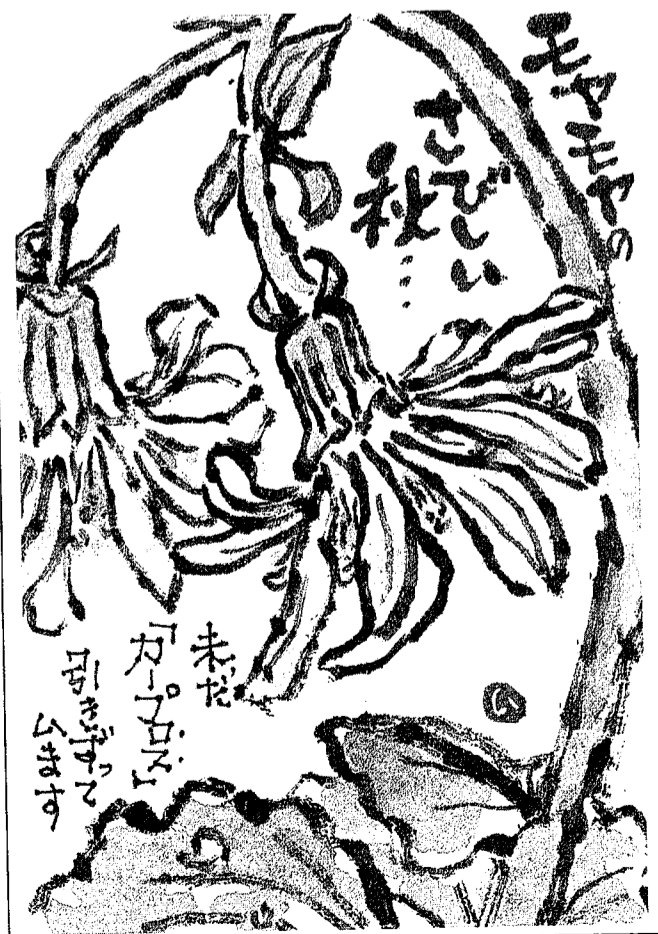 モヤモヤの
さびしい
秋…
未だ
「カープロス」
引きずって
います